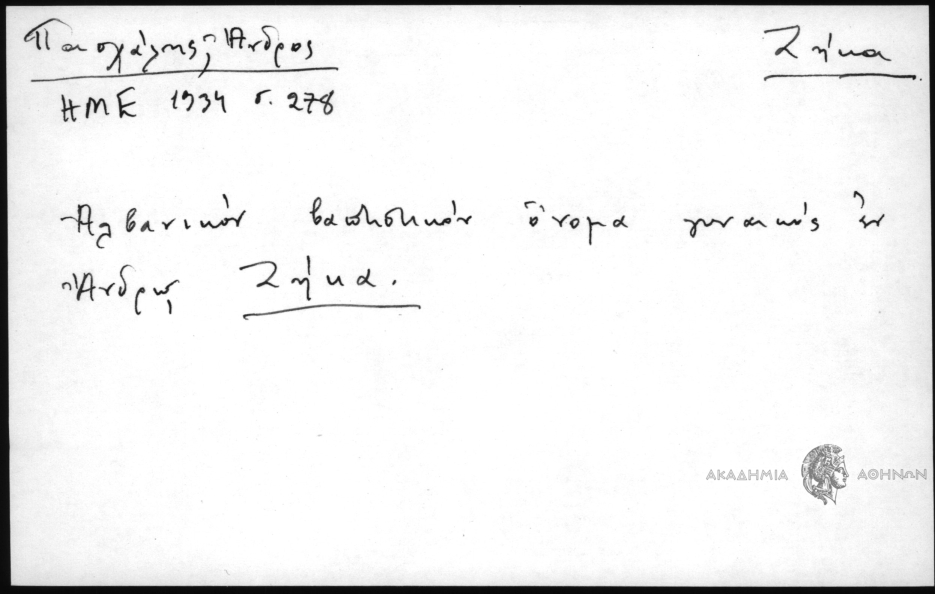 Πασχάλης, Ἄνδρος
Ζήκα
ΗΜΕ 1934 σ. 278
Ἀλβανικὸν βαπτιστικὸν ὄνομα γυναικός ἐν
Ἄνδρῳ Ζήκα.
ΑΚΑΔΗΜΙΑ ΑΘΗΝΩΝ